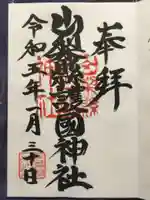 奉拝
山梨縣護國神社
令和二年一月三十日